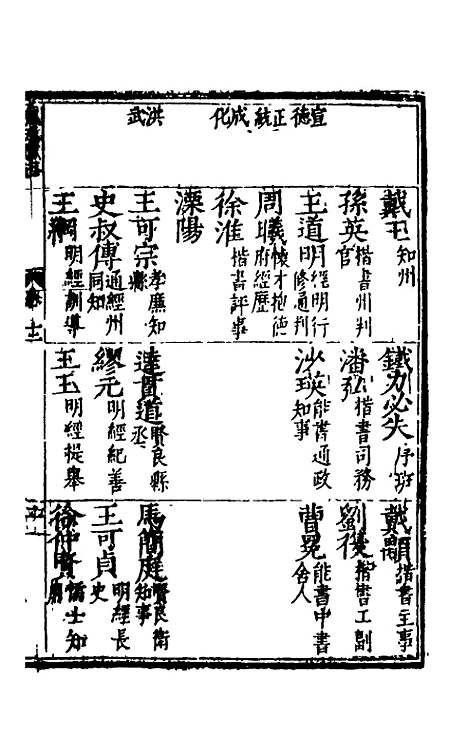 宣德 正統 成化 洪武
戴王 知州
鐵力必失 序班
戴顒 楷書主事
孫英 楷書州判官
潘弘 楷書司務
劉俊 楷書工副
王道明 經明行修通判
沙瑛 英能書通政知事
曹冕 能書中書舍人
周 懷才抱德府經歷
徐淮 楷書評事
溧陽
王可宗 孝廉知縣
達貫道 賢良縣丞
馬簡庭 賢良衛知事
史叔傳 通經州同知
繆元 明經紀善
王可貞 明經長史
王 明經訓導
王玉 明經提舉
徐仲賢 儒士知